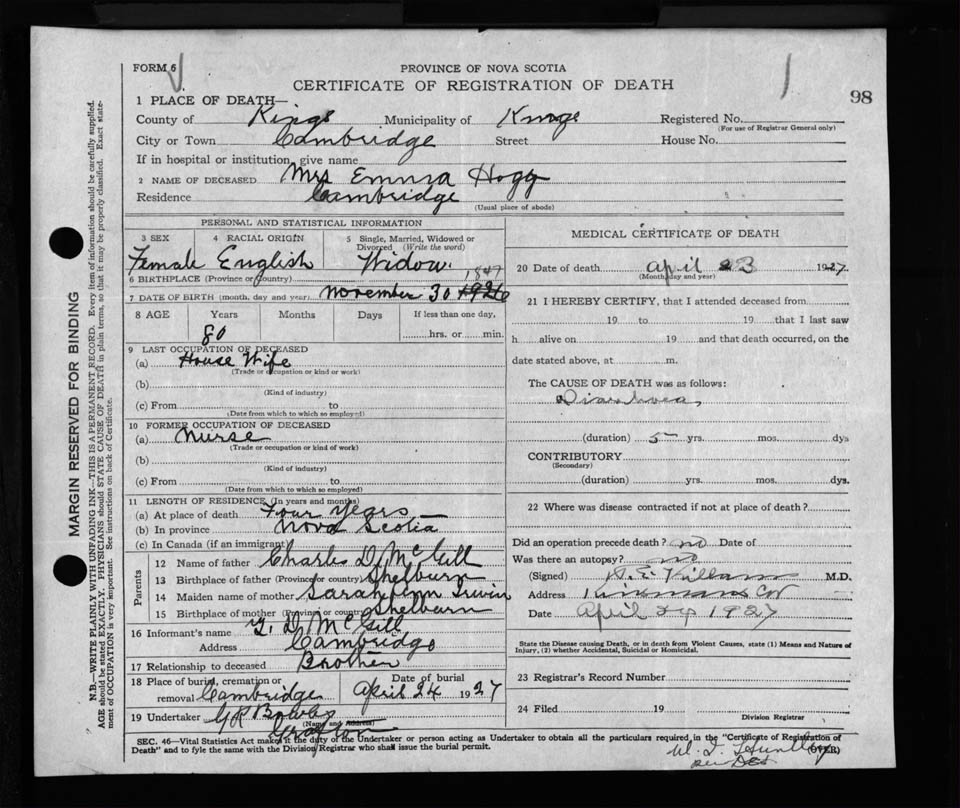 FORM 6
PROVINCE OF NOVA SCOTIA
CERTIFICATE OF REGISTRATION OF DEATH
98
1 PLACE OF DEATH—
County of Kings Municipality of Kings Registered No.
(For use of Registrar General only)
City or Town Cambridge Street House No.
If in hospital or institution, give name
2 NAME OF DECEASED Mrs Emma Hogg
Residence Cambridge
(Usual place of abode)
PERSONAL AND STATISTICAL INFORMATION
3 SEX 4 RACIAL ORIGIN 5 Single, Married, Widowed or Divorced (Write the word)
Female English Widow
6 BIRTHPLACE (Province or Country)
1847
7 DATE OF BIRTH (month, day and year) November 30 1926
8 AGE Years Months Days If less than one day,
80 hrs. or min.
9 LAST OCCUPATION OF DECEASED
(a) House Wife
(Trade or occupation or kind or work)
(b)
(Kind of industry)
(c) From to
(Date from which to which so employed)
10 FORMER OCCUPATION OF DECEASED
(a) Nurse
(Trade or occupation or kind of work)
(b)
(Kind of industry)
(c) From to
(Date from which to which so employed)
11 LENGTH OF RESIDENCE (In years and months)
(a) At place of death Four years
(b) In province Nova Scotia
(c) In Canada (if an immigrant)
Parents
12 Name of father Charles D McGill
13 Birthplace of father (Province or country) Shelburn
14 Maiden name of mother Sarah Ann Irwin
15 Birthplace of mother (Province or country) Shelburn
16 Informant's name D McGill
Address Cambridge
17 Relationship to deceased Brother
18 Place of burial, cremation or removal Cambridge Date of burial April 24 1927
19 Undertaker G R Bowles
(Name and Address)
Grafton
MEDICAL CERTIFICATE OF DEATH
20 Date of death April 23 1927
(Month, day and year)
21 I HEREBY CERTIFY, that I attended deceased from
19 to 19 that I last saw
h alive on 19 and that death occurred, on the
date stated above, at m.
The CAUSE OF DEATH was as follows:
Diarrhoea
(duration) 5 yrs. mos. dys
CONTRIBUTORY
(Secondary)
(duration) yrs. mos. dys.
22 Where was disease contracted if not at place of death?
Did an operation precede death? no Date of
Was there an autopsy? no
(Signed) Killam M.D.
Address
Date April 24 1927
State the Disease causing Death, or in death from Violent Causes, state (1) Means and Nature of
Injury, (2) whether Accidental, Suicidal or Homicidal.
23 Registrar's Record Number
24 Filed 19
Division Registrar
SEC. 46—Vital Statistics Act makes it the duty of the Undertaker or person acting as Undertaker to obtain all the particulars required in the "Certificate of Registration of
Death" and to fyle the same with the Division Registrar who shall issue the burial permit. (OVER)
MARGIN RESERVED FOR BINDING
N.B.—WRITE PLAINLY WITH UNFADING INK—THIS IS A PERMANENT RECORD. Every item of information should be carefully supplied.
AGE should be stated EXACTLY. PHYSICIANS should STATE CAUSE OF DEATH in plain terms, so that it may be properly classified. Exact state-
ment of OCCUPATION is very important. See instructions on back of Certificate.